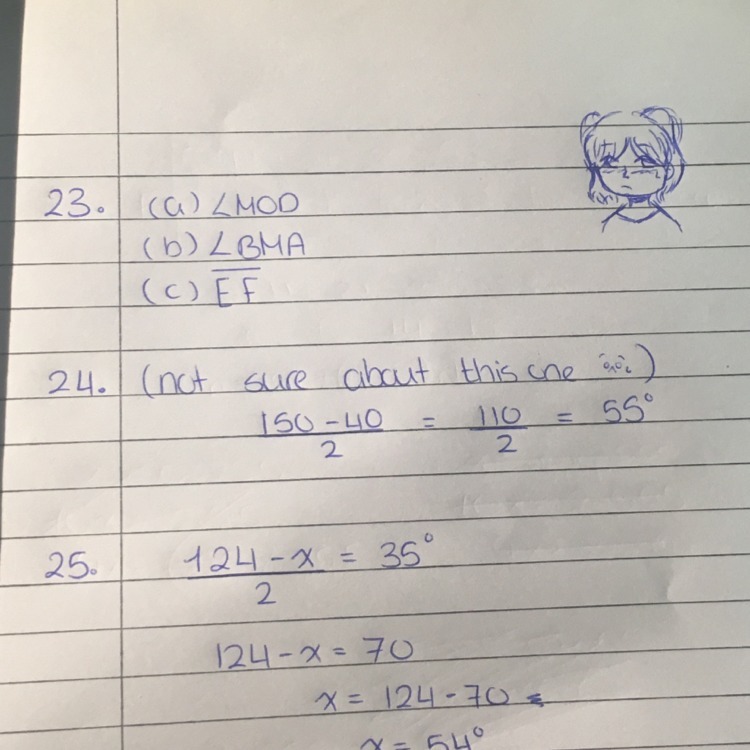 23. (a) ∠MOD
(b) ∠BMA
(c) E̅F̅
24. (not sure about this one )
150 - 40 / 2 = 110 / 2 = 55°
25. 124 - x / 2 = 35°
124 - x = 70
x = 124 - 70
x = 54°